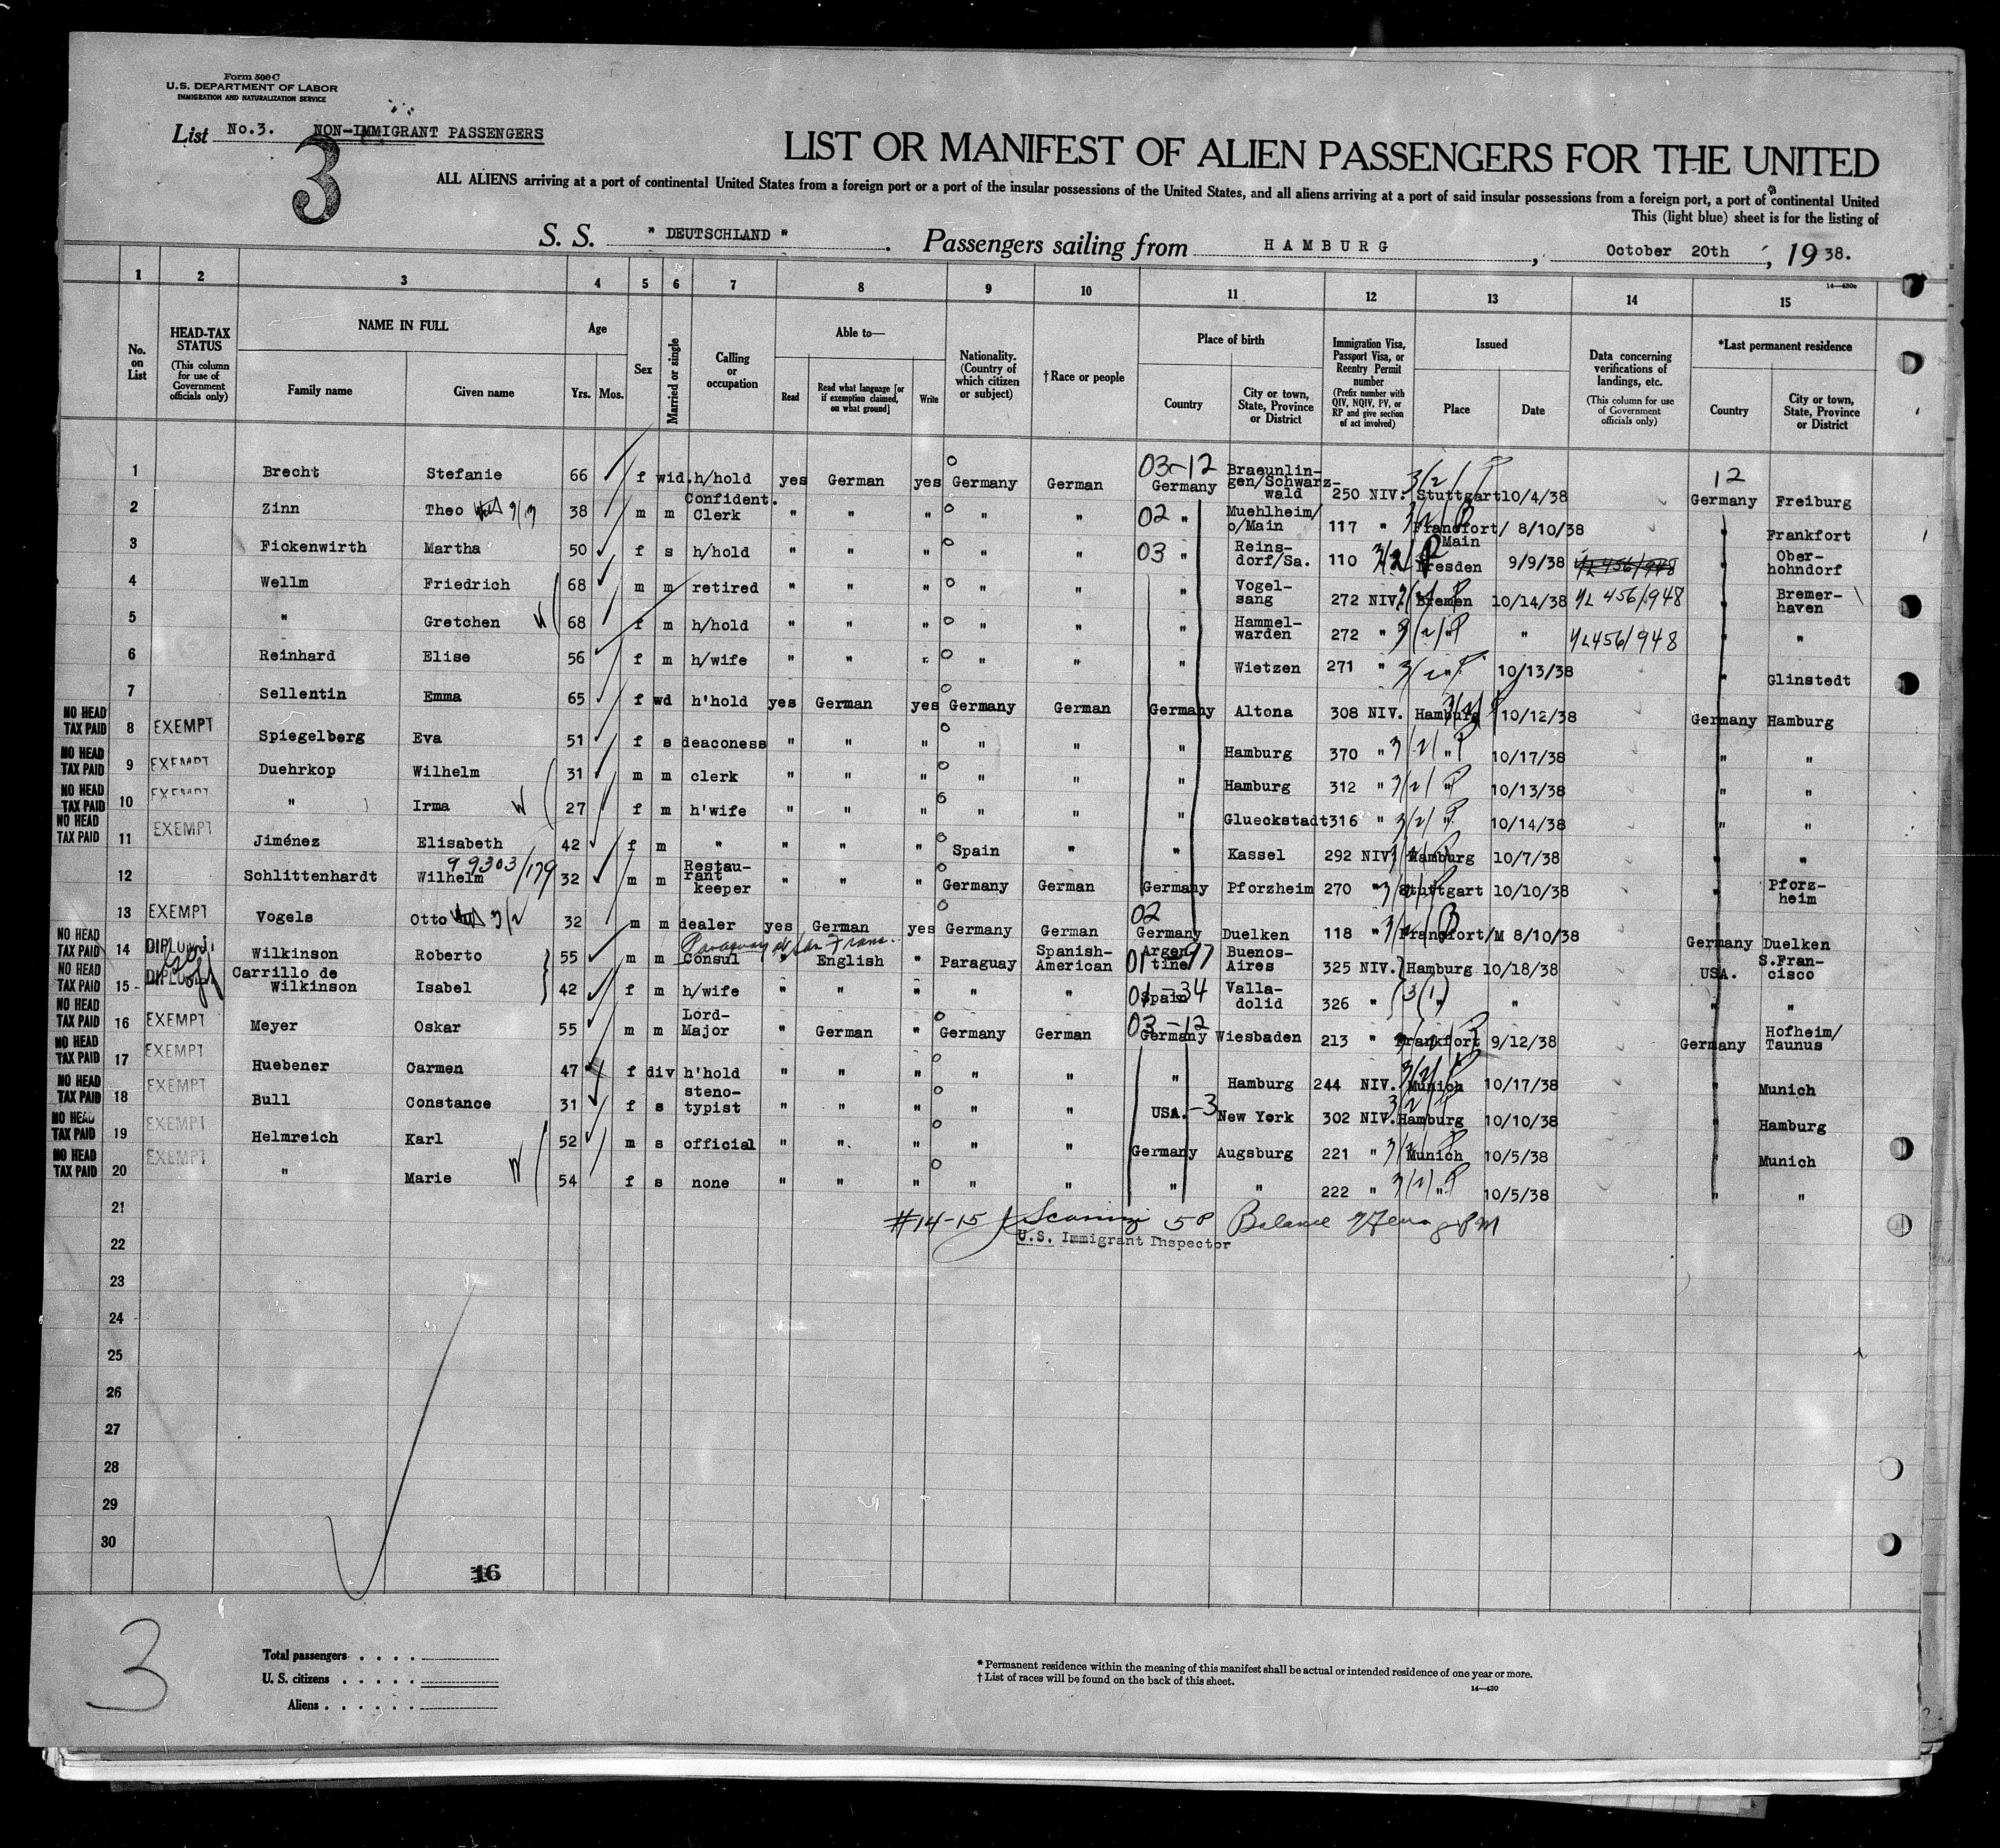 Form 500 C
U.S. DEPARTMENT OF LABOR
IMMIGRATION AND NATURALIZATION SERVICE
List No.3. NON-IMMIGRANT PASSENGERS
3
LIST OR MANIFEST OF ALIEN PASSENGERS FOR THE UNITED
ALL ALIENS arriving at a port of continental United States from a foreign port or a port of the insular possessions of the United States, and all aliens arriving at a port of said insular possessions from a foreign port, a port of continental United
This (light blue) sheet is for the listing of
S. S. "DEUTSCHLAND". Passengers sailing from HAMBURG, October 20th, 1938.
1 2 3 4 5 6 7 8 9 10 11 12 13 14 15
14—430c
No. on List
HEAD-TAX STATUS (This column for use of Government officials only)
NAME IN FULL
Family name
Given name
Age
Yrs. Mos.
Sex
Married or single
Calling or occupation
Able to—
Read
Read what language [or if exemption claimed, on what ground]
Write
Nationality. (Country of which citizen or subject)
† Race or people
Place of birth
Country
City or town, State, Province or District
Immigration Visa, Passport Visa, or Reentry Permit number (Prefix number with QIV, NQIV, PV, or RP and give section of act involved)
Issued
Place
Date
Data concerning verifications of landings, etc. (This column for use of Government officials only)
*Last permanent residence
Country
City or town, State, Province or District
1 Brecht Stefanie 66 f wid. h/hold yes German yes Germany German 03-12 Germany Braeunlingen/Schwarzwald 250 NIV. Stuttgart 10/4/38 12 Germany Freiburg
2 Zinn Theo 38 m m Confident. Clerk " " " " " 02 " Muehlheim/o/Main 117 " Frankfort/Main 8/10/38 " Frankfort
3 Fickenwirth Martha 50 f s h/hold " " " " " 03 " Reinsdorf/Sa. 110 Dresden 9/9/38 " Oberhohndorf
4 Wellm Friedrich 68 m m retired " " " " " " Vogelsang 272 NIV. Bremen 10/14/38 456/948 " Bremerhaven
5 " Gretchen 68 f m h/hold " " " " " " Hammelwarden 272 " " " 456/948 " "
6 Reinhard Elise 56 f m h/wife " " " " " " Wietzen 271 " " 10/13/38 " Glinstedt
7 Sellentin Emma 65 f wd h'hold yes German yes Germany German Germany Altona 308 NIV. Hamburg 10/12/38 Germany Hamburg
NO HEAD TAX PAID 8 EXEMPT Spiegelberg Eva 51 f s deaconess " " " " " " Hamburg 370 " " 10/17/38 " "
NO HEAD TAX PAID 9 EXEMPT Duehrkop Wilhelm 31 m m clerk " " " " " " Hamburg 312 " " 10/13/38 " "
NO HEAD TAX PAID 10 EXEMPT " Irma 27 f m h'wife " " " " " " Glueckstadt 316 " " 10/14/38 " "
NO HEAD TAX PAID 11 EXEMPT Jiménez Elisabeth 42 f m " " " " Spain " " Kassel 292 NIV. Hamburg 10/7/38 " "
99303/179
12 Schlittenhardt Wilhelm 32 m m Restaurant keeper " " " Germany German Germany Pforzheim 270 " Stuttgart 10/10/38 " Pforzheim
13 EXEMPT Vogels Otto 32 m m dealer yes German yes Germany German 02 Germany Duelken 118 " Frankfort/M 8/10/38 Germany Duelken
NO HEAD TAX PAID 14 Wilkinson Roberto 55 m m Consul " English " Paraguay Spanish-American 01-97 Argentine Buenos-Aires 325 NIV. Hamburg 10/18/38 USA. S.Francisco
NO HEAD TAX PAID 15 Carrillo de Wilkinson Isabel 42 f m h/wife " " " " " 01-34 Spain Valladolid 326 " " " " "
NO HEAD TAX PAID 16 EXEMPT Meyer Oskar 55 m m Lord-Major " German " Germany German 03-12 Germany Wiesbaden 213 " Frankfort 9/12/38 Germany Hofheim/Taunus
NO HEAD TAX PAID 17 EXEMPT Huebener Carmen 47 f div h'hold " " " " " " Hamburg 244 NIV. Munich 10/17/38 " Munich
NO HEAD TAX PAID 18 EXEMPT Bull Constance 31 f s stenotypist " " " " " USA.-3 New York 302 NIV. Hamburg 10/10/38 " Hamburg
NO HEAD TAX PAID 19 EXEMPT Helmreich Karl 52 m s official " " " " " Germany Augsburg 221 " Munich 10/5/38 " Munich
NO HEAD TAX PAID 20 EXEMPT " Marie 54 f s none " " " " " " " 222 " " 10/5/38 " "
21 #14-15 Balance
U.S. Immigrant Inspector
22
23
24
25
26
27
28
29
30
16
3
Total passengers
U. S. citizens
Aliens
* Permanent residence within the meaning of this manifest shall be actual or intended residence of one year or more.
† List of races will be found on the back of this sheet.
14—430